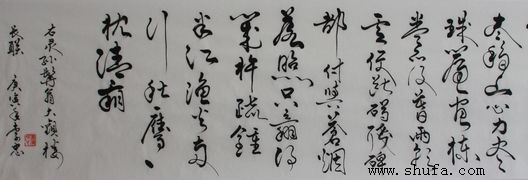 尽移山心力尽
珠簾画栋
卷不及暮雨朝
云便断碣残碑
都付与苍烟
落照只赢得
几杵疏钟
半江渔火两
行秋雁一
枕清霜
右录孙髯翁大观楼
长联 庚寅年
www.shufa.com